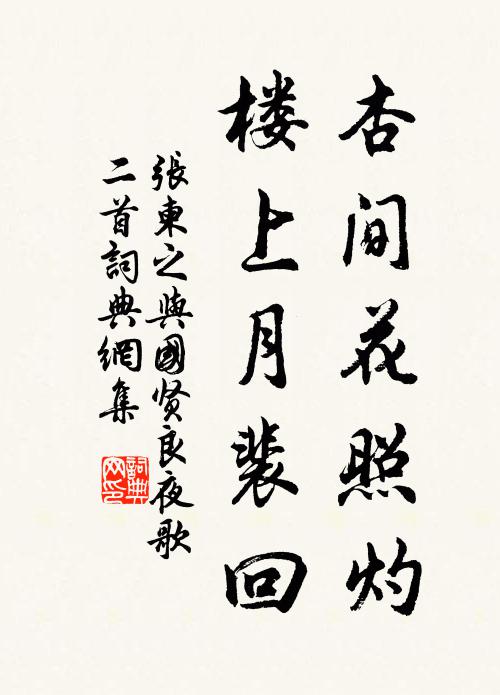 杏间花照灼
楼上月裴回
張東之與國贤良夜歌
二首詞典網集
詞典
网印